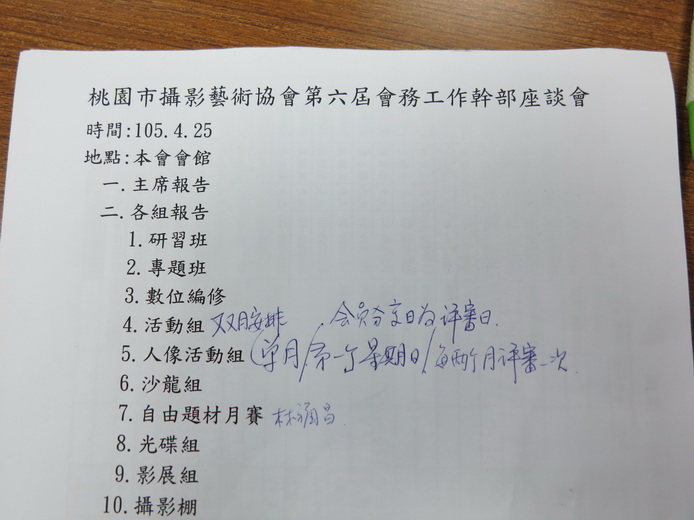 桃園市攝影藝術協會第六屆會務工作幹部座談會
時間:105.4.25
地點:本會會館
一.主席報告
二.各組報告
1.研習班
2.專題班
3.數位編修
4.活動組 双月安排,会员分享日为评審日.
5.人像活動組(单月/第一个星期日/每两个月评審一次.
6.沙龍組
7.自由題材月賽 林
8.光碟組
9.影展組
10.攝影棚